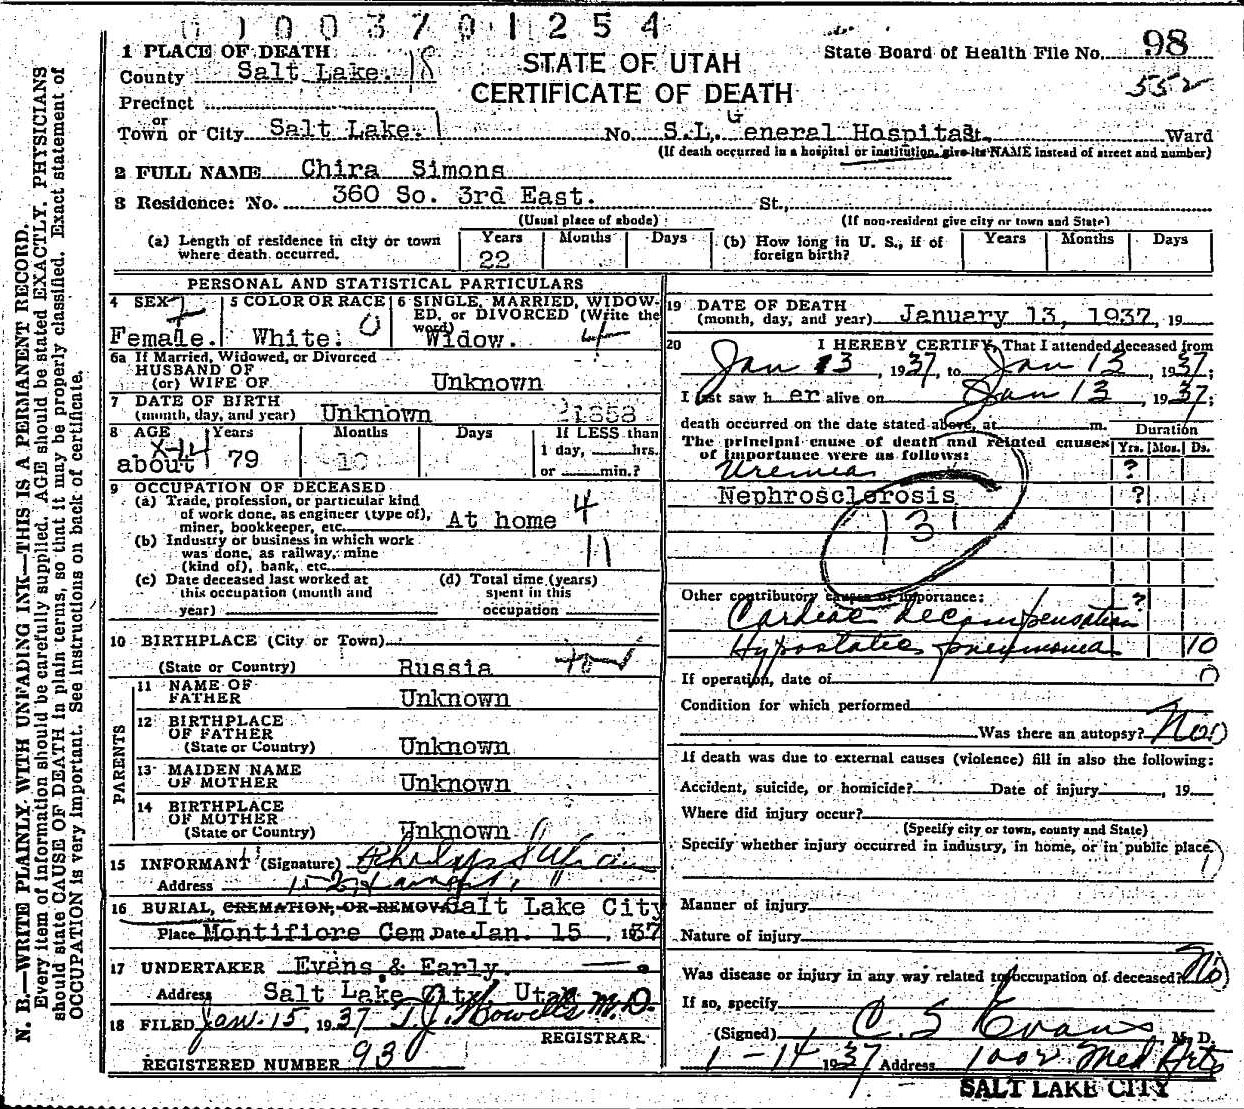 1003701254
1 PLACE OF DEATH
County Salt Lake. 18
Precinct
or
Town or City Salt Lake. 1 No. S.L. General Hospital St. Ward
(If death occurred in a hospital or institution, give its NAME instead of street and number)
STATE OF UTAH
CERTIFICATE OF DEATH
State Board of Health File No. 98
552
2 FULL NAME Chira Simons
3 Residence: No. 360 So. 3rd East. St.,
(Usual place of abode) (If non-resident give city or town and State)
(a) Length of residence in city or town where death occurred. Years 22 Months Days
(b) How long in U. S., if of foreign birth? Years Months Days
PERSONAL AND STATISTICAL PARTICULARS
4 SEX Female.
5 COLOR OR RACE White. 0
6 SINGLE, MARRIED, WIDOWED, or DIVORCED (Write the word) Widow. 4
6a If Married, Widowed, or Divorced
HUSBAND OF
(or) WIFE OF Unknown
7 DATE OF BIRTH
(month, day, and year) Unknown 1858
8 AGE Years Months Days If LESS than
about 79 10 1 day, hrs.
or min.?
9 OCCUPATION OF DECEASED
(a) Trade, profession, or particular kind
of work done, as engineer (type of),
miner, bookkeeper, etc. At home 4
(b) Industry or business in which work
was done, as railway, mine
(kind of), bank, etc. 11
(c) Date deceased last worked at
this occupation (month and
year)
(d) Total time (years)
spent in this
occupation
10 BIRTHPLACE (City or Town)
(State or Country) Russia
PARENTS
11 NAME OF
FATHER Unknown
12 BIRTHPLACE
OF FATHER
(State or Country) Unknown
13 MAIDEN NAME
OF MOTHER Unknown
14 BIRTHPLACE
OF MOTHER
(State or Country) Unknown
15 INFORMANT (Signature)
Address
16 BURIAL, CREMATION, OR REMOVAL Salt Lake City
Place Montifiore Cem Date Jan. 15, 1937
17 UNDERTAKER Evans & Early.
Address Salt Lake City, Utah
18 FILED Jan. 15, 1937 T.J. Howells M.D.
REGISTRAR.
REGISTERED NUMBER 93
19 DATE OF DEATH
(month, day, and year) January 13, 1937, 19
20 I HEREBY CERTIFY, That I attended deceased from
Jan 13, 1937, to Jan 13, 1937;
I last saw her alive on Jan 13, 1937;
death occurred on the date stated above, at m.
Duration
The principal cause of death and related causes
of importance were as follows: Yrs. Mos. Ds.
Uremia ?
Nephrosclerosis ?
131
Other contributory causes of importance:
Cardiac decompensation ?
Hypostatic pneumonia 10
If operation, date of 0
Condition for which performed
Was there an autopsy? No
If death was due to external causes (violence) fill in also the following:
Accident, suicide, or homicide? Date of injury, 19
Where did injury occur?
(Specify city or town, county and State)
Specify whether injury occurred in industry, in home, or in public place.
Manner of injury
Nature of injury
Was disease or injury in any way related to occupation of deceased? No
If so, specify
(Signed) C. S. Evans M. D.
1-14 1937 Address 1002 Med Arts
SALT LAKE CITY
N. B.—WRITE PLAINLY WITH UNFADING INK—THIS IS A PERMANENT RECORD.
Every item of information should be carefully supplied. AGE should be stated EXACTLY. PHYSICIANS
should state CAUSE OF DEATH in plain terms, so that it may be properly classified. Exact statement of
OCCUPATION is very important. See instructions on back of certificate.